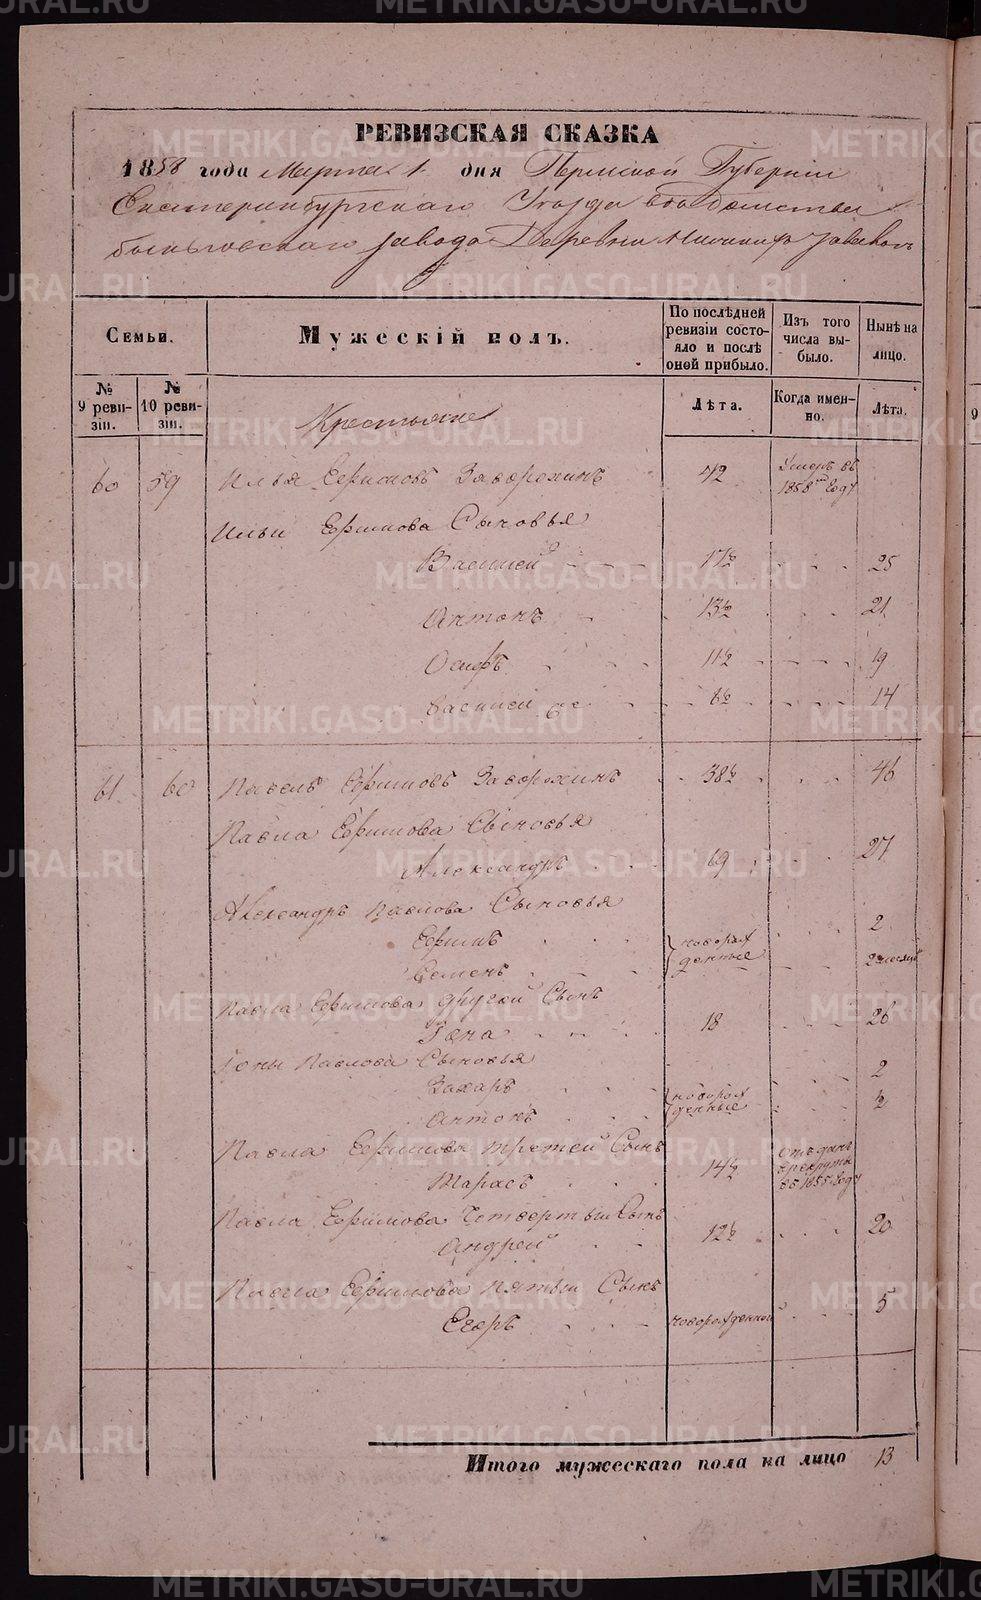 РЕВИЗСКАЯ СКАЗКА
1858 года Марта 1 дня Пермской Губернии
Екатеринбургскаго Уезда ведомства
заводо Деревни
Семьи.
Мужескій полъ.
По послѣдней ревизіи состояло и послѣ оной прибыло.
Изъ того числа выбыло.
Нынѣ на лицо.
№ 9 ревизіи.
№ 10 ревизіи.
Лѣта.
Когда именно.
Лѣта.
Крестьяне
60 59 Илья Ефимовъ Заворохинъ 42 Умеръ въ 1858 году
Ильи Ефимова Сыновья
Василей 17½ 25
Антонъ 13½ 21
Осифъ 11½ 19
Василей 2й 6½ 14
61 60 Павелъ Ефимовъ Заворохинъ 38½ 46
Павла Ефимова Сыновья
Александръ 19 27
Александръ Павлова Сыновья
Ефимъ новорожденные 2
Семенъ 2 месяца
Павла Ефимова другой Сынъ
Iона 18 26
Iоны Павлова Сыновья
Захаръ новорожденные 2
Антонъ ½
Павла Ефимова третей Сынъ
Тарасъ 14½ Отъданъ в рекруты въ 1855 году
Павла Ефимова Четвертый Сынъ
Андрей 12½ 20
Павла Ефимова пятый Сынъ
Егоръ новорожденной 5
Итого мужескаго пола на лицо 13
METRIKI.GASO-URAL.RU